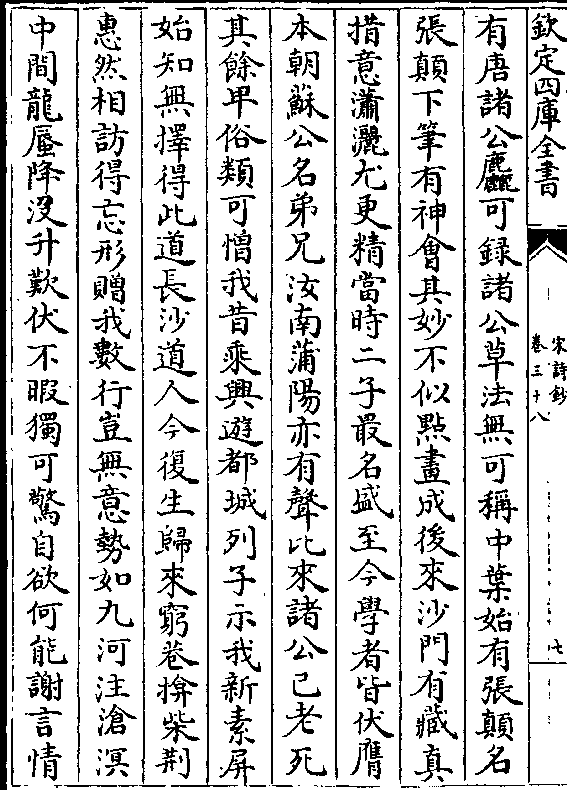 欽定四庫全書
宋詩鈔
卷三十八
七
有唐諸公麤可録諸公草法無可稱中葉始有張顛名
張顛下筆有神會其妙不似點畫成後來沙門有藏真
措意瀟灑尤更精當時二子最名盛至今學者皆伏膺
本朝蘇公名弟兄汝南蒲陽亦有聲比來諸公已老死
其餘卑俗類可憎我昔乘興遊都城列子示我新素屏
始知無擇得此道長沙道人今復生歸來窮巷揜柴荆
惠然相訪得忘形贈我數行豈無意勢如九河注滄溟
中間龍蜃降没升歎伏不暇獨可驚自欲何能謝言情